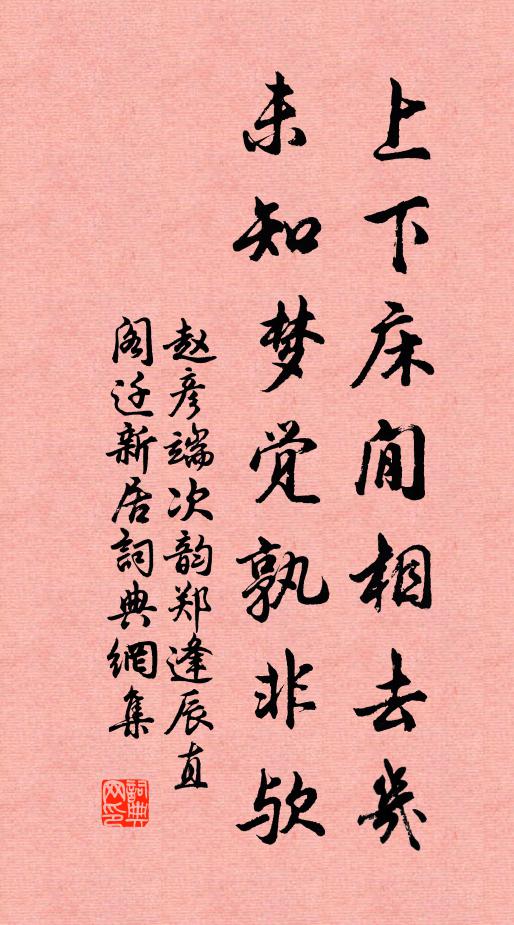 上下床间相去几
未知梦觉孰非欤
赵彦端次韵郑逢辰直
阁迁新居詞典網集
詞典网印